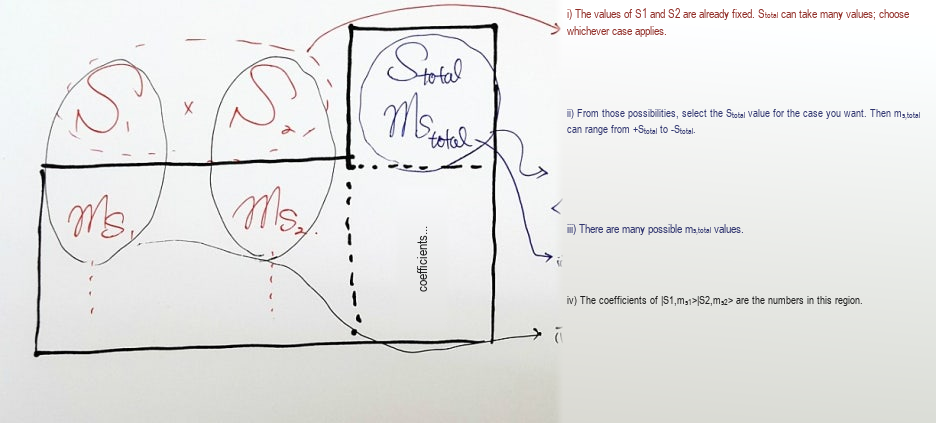 S1 x S2
Stotal
mStotal
mS1 mS2
coefficients...
i) The values of S1 and S2 are already fixed. Stotal can take many values; choose
whichever case applies.
ii) From those possibilities, select the Stotal value for the case you want. Then ms,total
can range from +Stotal to -Stotal.
iii) There are many possible ms,total values.
iv) The coefficients of |S1,ms1>|S2,ms2> are the numbers in this region.